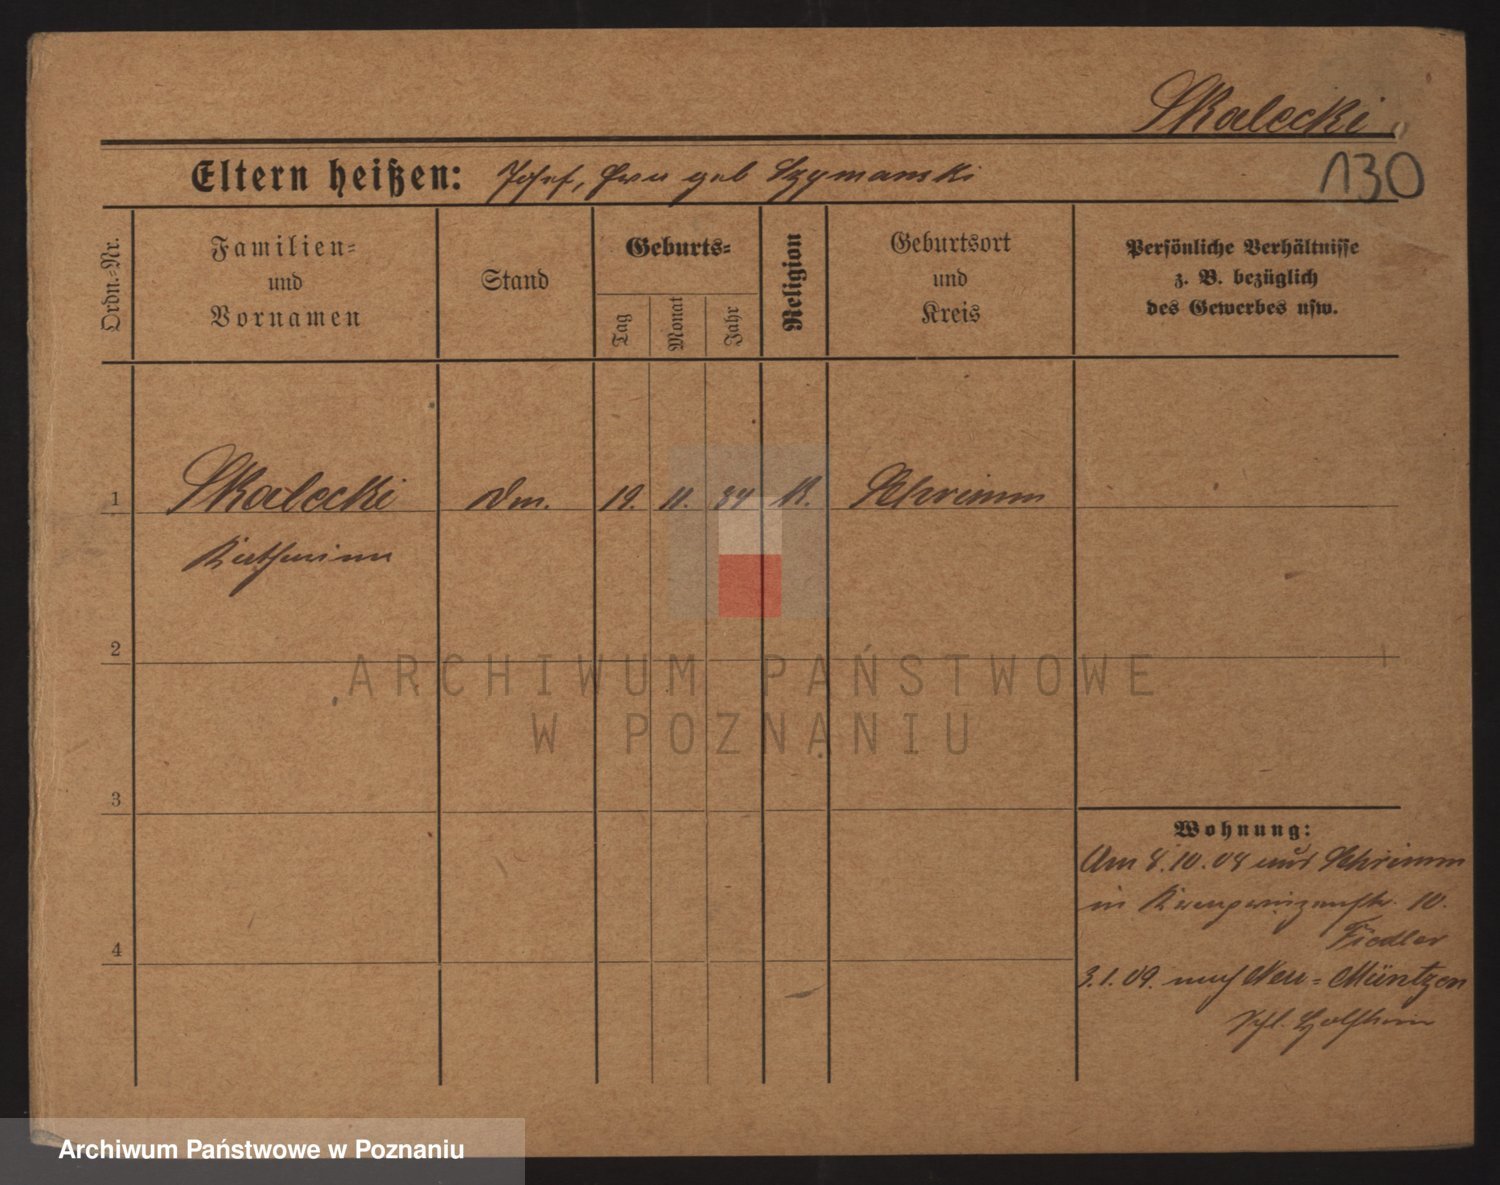 Skalecki
130
Eltern heißen: Josef, Eva geb Szymanski
Ordn.-Nr.
Familien-
und
Vornamen
Stand
Geburts-
Tag
Monat
Jahr
Religion
Geburtsort
und
Kreis
Persönliche Verhältnisse
z. B. bezüglich
des Gewerbes usw.
1 Skalecki 19. 11. 84 K. Schrimm
Katharina
2
3
4
Wohnung:
Am 8.10.08 aus Schrimm
in 10.
Fiedler
3.1.09. nach Neu-Müntzen
Holstein
ARCHIWUM PAŃSTWOWE
W POZNANIU
Archiwum Państwowe w Poznaniu